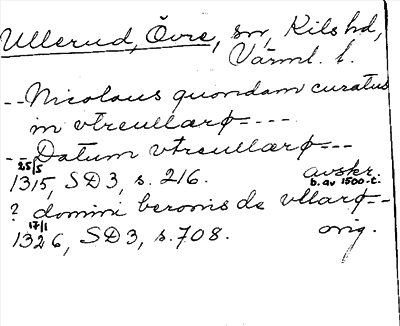 Ullerud, Övre, sn, Kils hd,
Värml. l.
--Nicolaus quondam curatus
in vtreullarø----
--Datum vtreullærø---
25/5
1315, SD3, s. 216. avskr.
b. av 1500-t.
? domini beronis de vllarø--
17/1
1326, SD3, s. 708. orig.